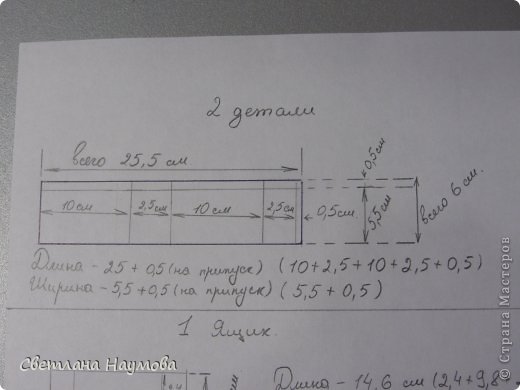 2 детали
всего 25,5 см
0,5см
10см 2,5см 10см 2,5см
0,5см.
5,5см
всего 6 см.
Длина - 25 + 0,5 (на припуск) (10+2,5+10+2,5+0,5)
Ширина - 5,5 + 0,5 (на припуск) (5,5 + 0,5)
1 Ящик.
Светлана Наумова
Длина - 14,6 см (2,4+9,8
© Страна Мастеров